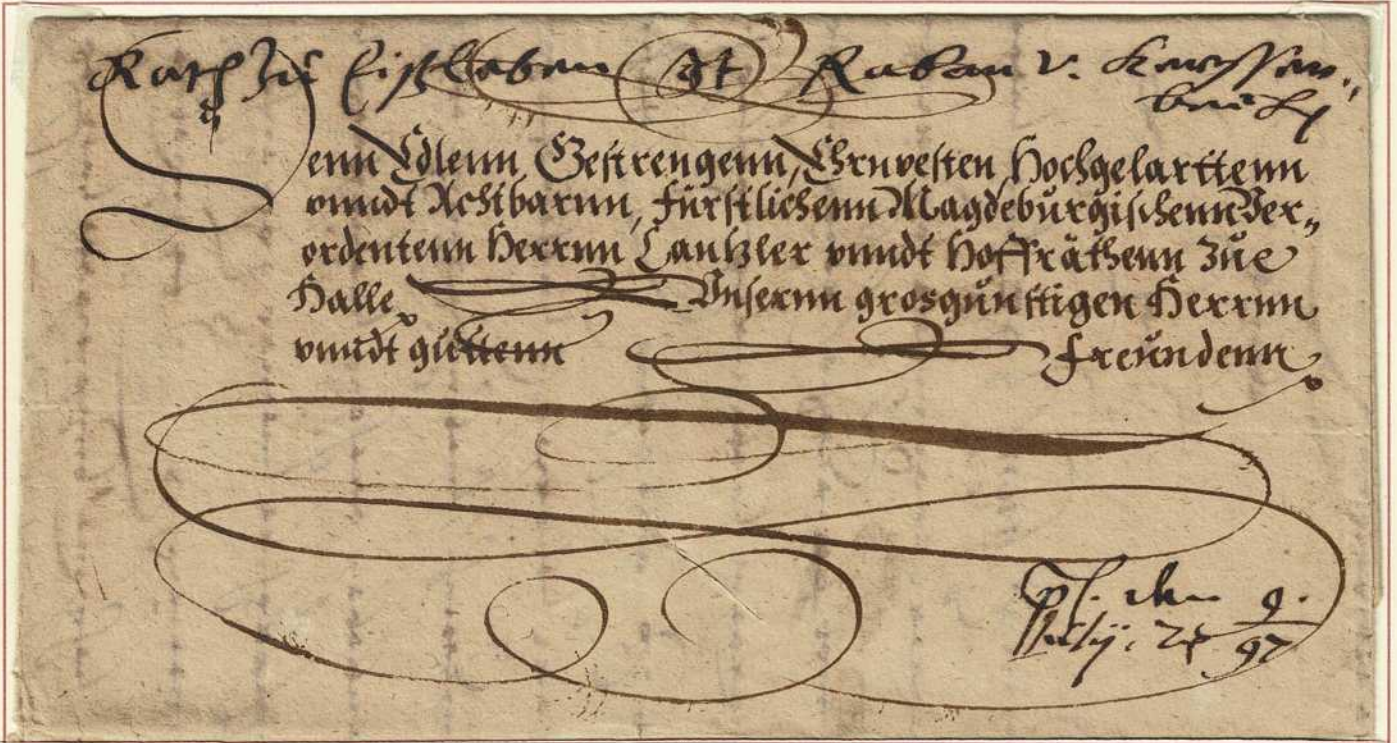 Rath zu Eißleben Raban v. Kerssen„
bruch
Denn Edlenn, Gestrengenn, Ehrnvesten, Hochgelarttenn
vnndt Achtbarnn, Fürstlichenn Magdebürgischenn Ver„
ordentenn Herrnn Cantzler vnndt Hoffräthenn Züe
Halle, Vnsernn grosgünstigen Herrnn
vnndt güttenn Freündenn
den 9.
97